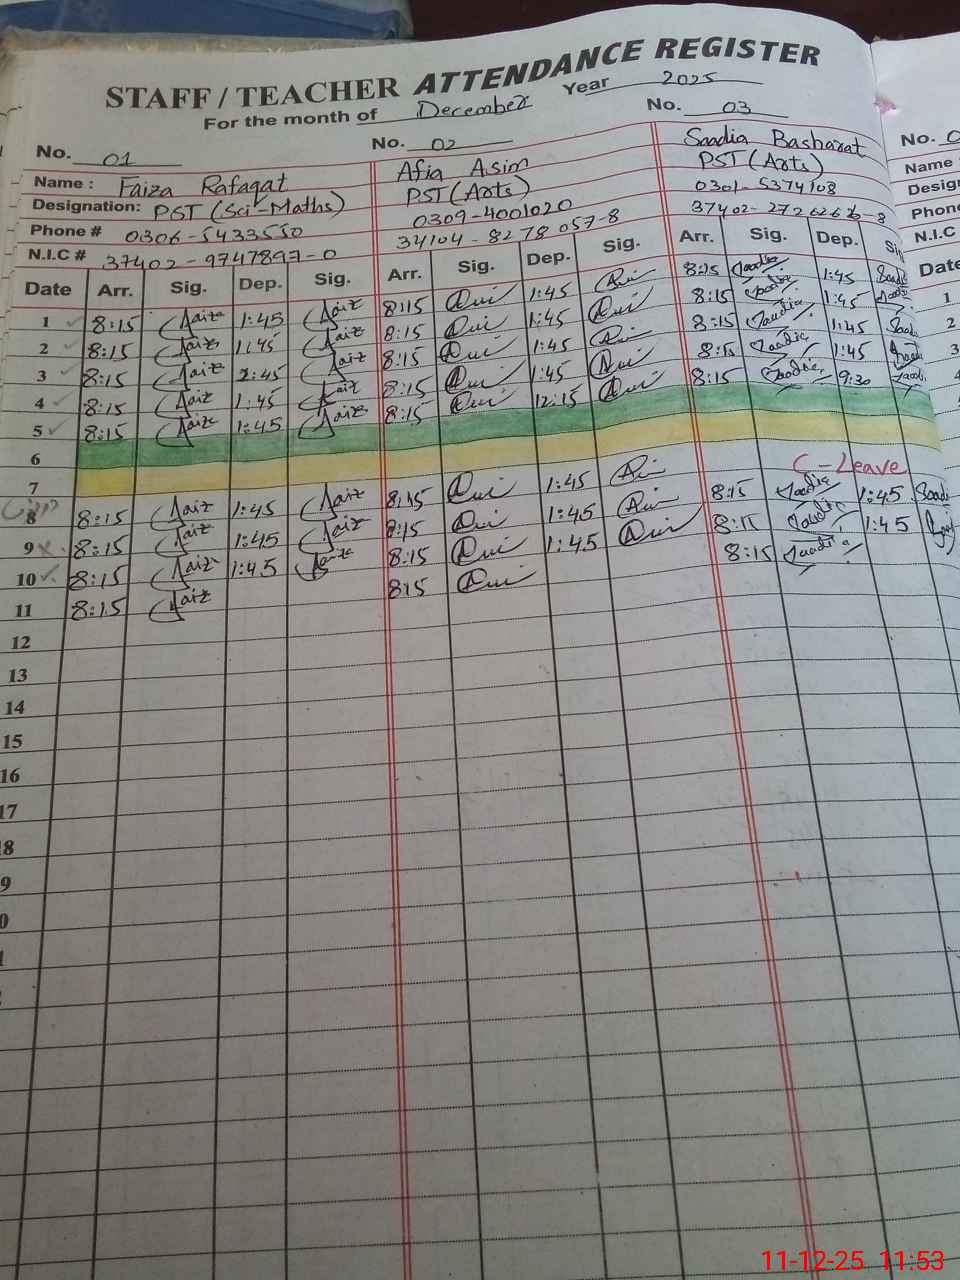 STAFF / TEACHER ATTENDANCE REGISTER
For the month of December Year 2025
No. 01 No. 02 No. 03
Name : Faiza Rafaqat Afia Asim Saadia Basharat
Designation: PST (Sci-Maths) PST (Arts) PST (Arts)
Phone # 0306-5433550 0309-4001020 0301-5374108
N.I.C # 37402-9747897-0 34104-8278057-8
Date Arr. Sig. Dep. Sig. Arr. Sig. Dep. Sig. Arr. Sig. Dep.
1 8:15 Faiza 1:45 Faiz 8:15 1:45 8:15 Saadia 1:45 Saadi
2 8:15 Faiza 1:45 Faiz 8:15 1:45 8:15 Saadia 1:45
3 8:15 Faiz 1:45 Faiz 8:15 1:45 8:15 Saadia 1:45 Saadi
4 8:15 Faiz 1:45 Faiz 8:15 1:45 8:15 Saadia 1:45 Saadi
5 8:15 Faiz 1:45 Faiza 8:15 12:15 8:15 Saadia 9:30 Saadi
6
7
8 8:15 Faiz 1:45 Faiz 8:15 1:45 C-Leave
9 8:15 Faiz 1:45 Faiz 8:15 1:45 8:15 Saadia 1:45 Saadi
10 8:15 Faiz 1:45 8:15 1:45 8:15 Saadia 1:45
11 8:15 Faiz 8:15 8:15 Saadia
12
13
14
15
16
17
8
9
0
No.
Name
Design
Phone
N.I.C
Date
1
2
3
11-12-25 11:53